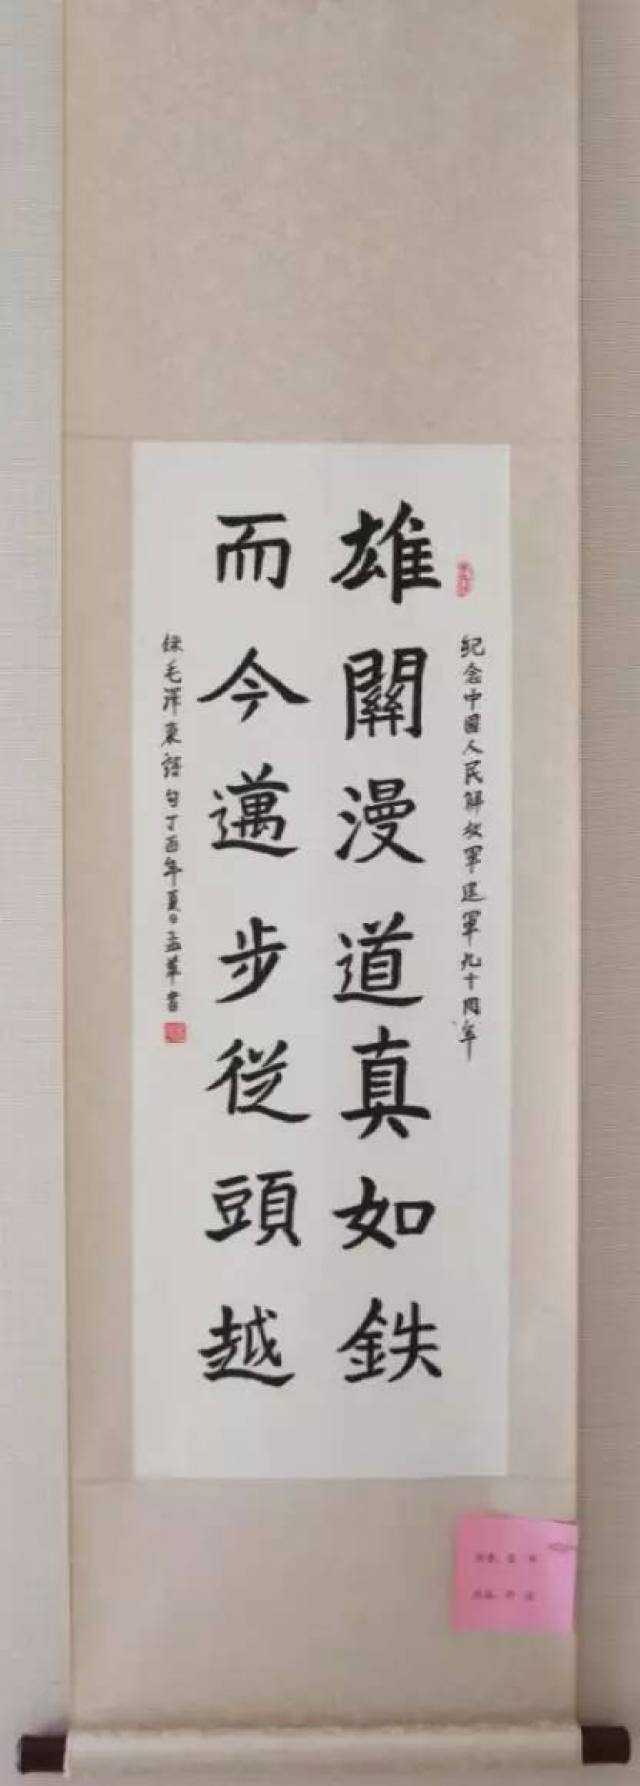 纪念中國人民解放军建軍九十周年
雄關漫道真如鉄
而今邁步從頭越
錄毛澤東詩句丁酉年夏日孟华書